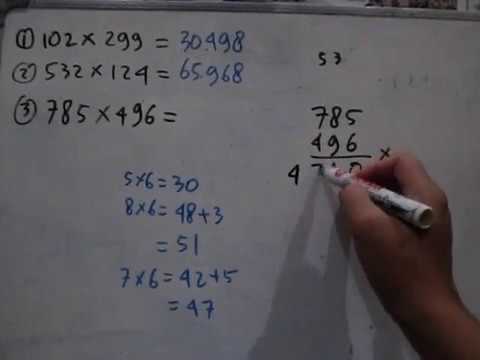 ① 102 × 299 = 30.498
② 532 × 124 = 65.968
③ 785 × 496 =
5 3
785
496 ×
4 7
5×6 = 30
8×6 = 48+3
= 51
7×6 = 42+5
= 47